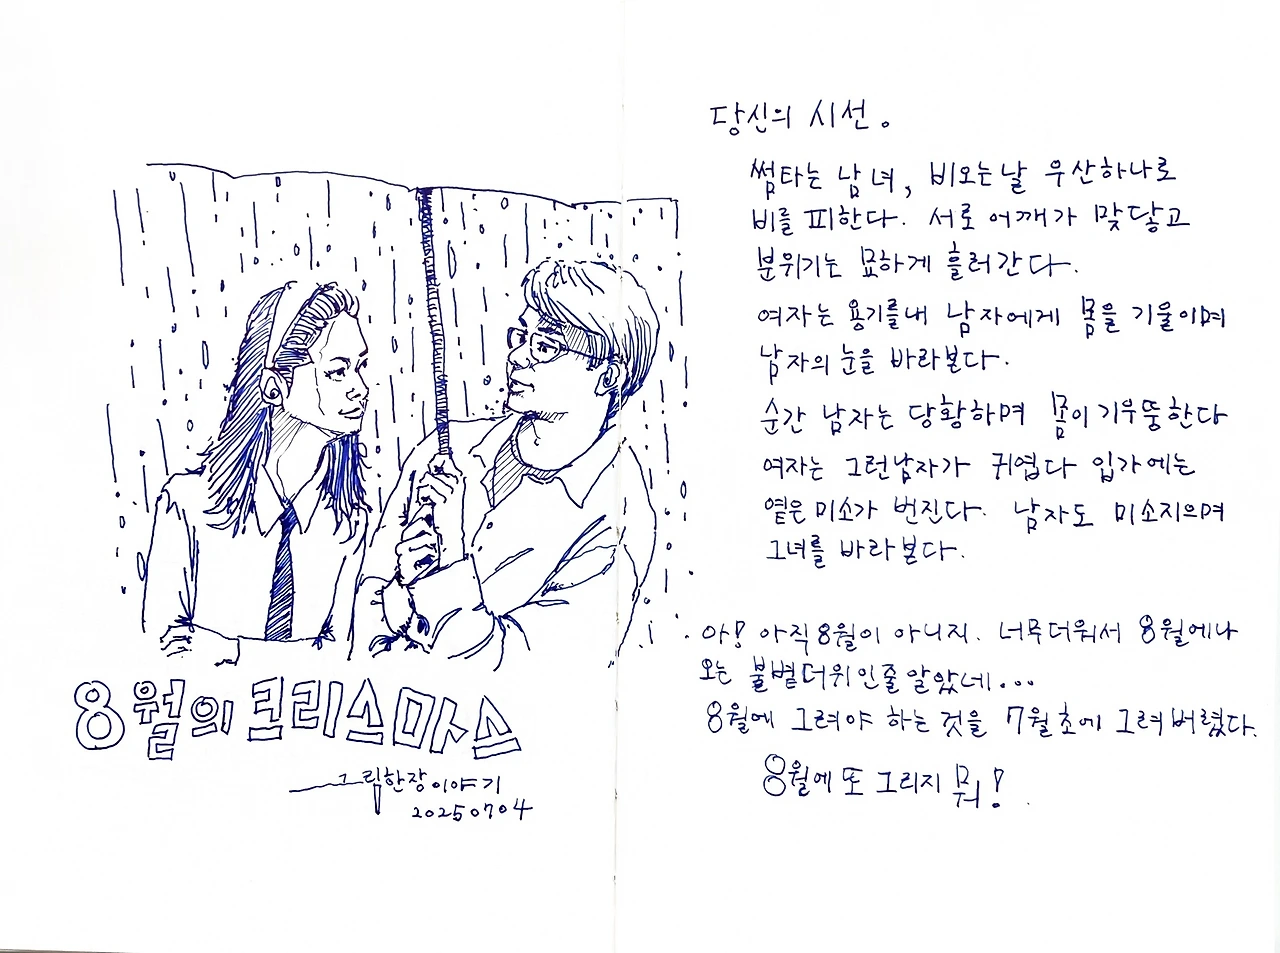 8월의 크리스마스
그림한장이야기
20250704
당신의 시선.
썸타는 남녀, 비오는날 우산하나로
비를 피한다. 서로 어깨가 맞닿고
분위기는 묘하게 흘러간다.
여자는 용기를내 남자에게 몸을 기울이며
남자의 눈을 바라본다.
순간 남자는 당황하며 몸이 기우뚱한다
여자는 그런남자가 귀엽다 입가에는
옅은 미소가 번진다. 남자도 미소지으며
그녀를 바라본다.
아! 아직 8월이 아니지. 너무더워서 8월에나
오는 불볕더위인줄 알았네...
8월에 그려야 하는 것을 7월초에 그려버렸다.
8월에 또 그리지 뭐!